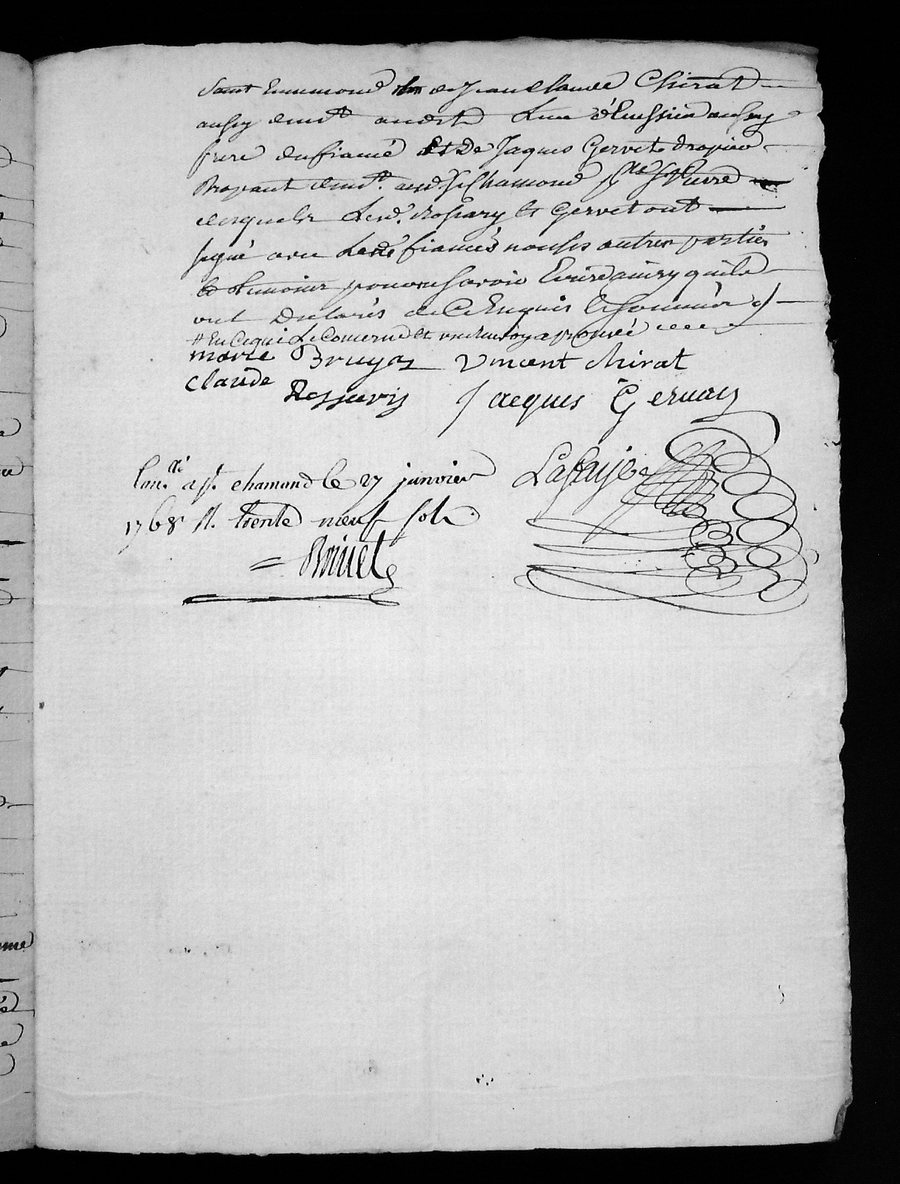 Saint Ennemond de Jean Claude Chirat
aussy demt audit lieu d'Luissieu aussy
frere du fiancé Et De Jaques Gervet drapier
Drapant demt. aud. St Chamond psse St Pierre
desquels Led. et Gervet ont
signé avec Led. fiancés non les autres parties
le temoin pour ne savoir Ecrire ainsy qu'ils
ont Declarés de ce Enquis et sommés
# En ce qui Le Concerne et approuvé
marie Bruyas Vincent Chirat
Claude Jacques Gervais
Lafaije
Con.llé a st. chamond le 27 janvier
1768 R. trente neuf sols
= Boiuet